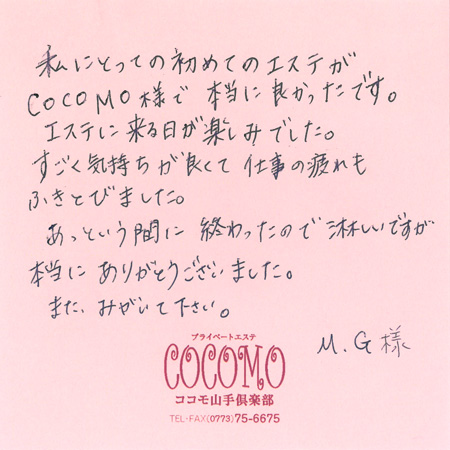 私にとっての初めてのエステが
COCOMO様で 本当に良かったです。
エステに来る日が楽しみでした。
すごく気持ちが良くて 仕事の疲れも
ふきとびました。
あっという間に 終わったので 淋しいですが
本当に ありがとうございました。
また、みがいて下さい。
M.G様
プライベートエステ
COCOMO
ココモ山手倶楽部
TEL・FAX(0773)75-6675